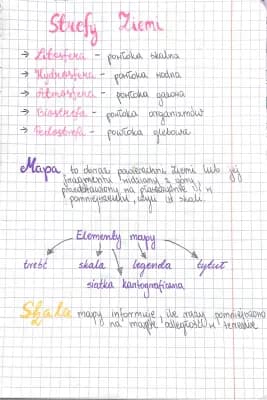 Strefy Ziemi
→ Litosfera - powłoka skalna
→ Hydrosfera - powłoka wodna
→ Atmosfera - powłoka gazowa
→ Biosfera - powłoka organizmów
→ Pedosfera - powłoka glebowa
Mapa to obraz powierzchni Ziemi lub jej
fragmentu widziany z góry
przedstawiony na płaszczyźnie w
pomniejszeniu, czyli w skali.
Elementy mapy
treść skala legenda tytuł
siatka kartograficzna
Skala mapy informuje, ile razy pomniejszono
na mapie odległości w terenie